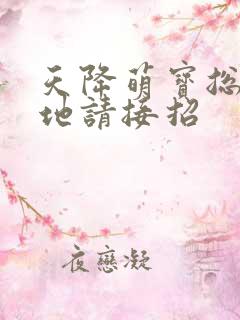 天降萌寶總
地請接招
夜戀凝